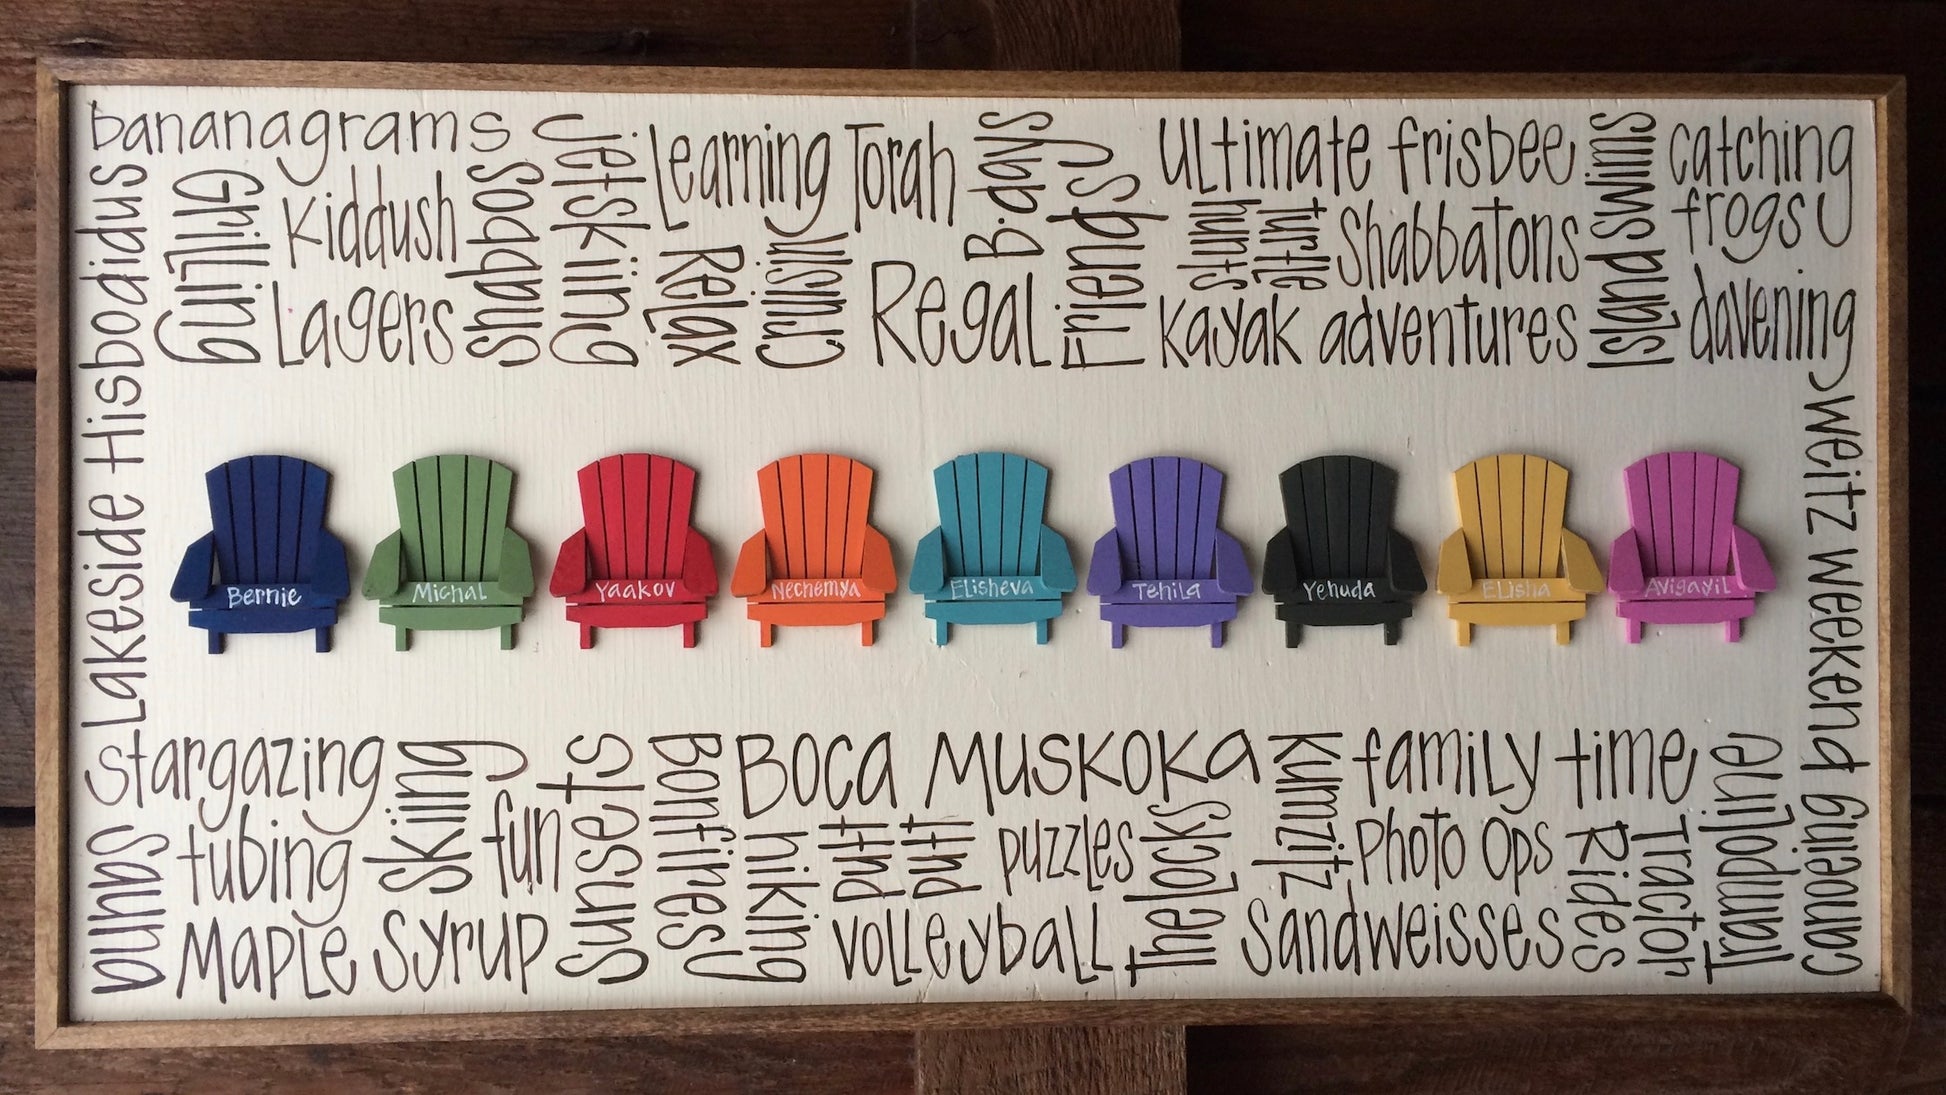 bananagrams
Lakeside Hisbodidus
Grilling
Kiddush
Lagers
Shabbos
Jet skiing
Learning Torah
Relax
Cruisin
Regal
B-days
Friends
Ultimate frisbee
stuny
hunt
turtle
Shabbatons
kayak adventures
Island swims
catching
frogs
davening
Weitz weekend
canoeing
Bernie
Michal
Yaakov
Nechemya
Elisheva
Tehila
Yehuda
Elisha
Avigayil
Stargazing
sauna
tubing
Maple Syrup
Skiing
fun
Sunsets
Bonfires
BOCA MUSKOKA
hiking
putt
putt
puzzles
volleyball
The Locks
Kumzitz
family time
Photo Ops
Sandweisses
Tractor
Rides
Trampoline